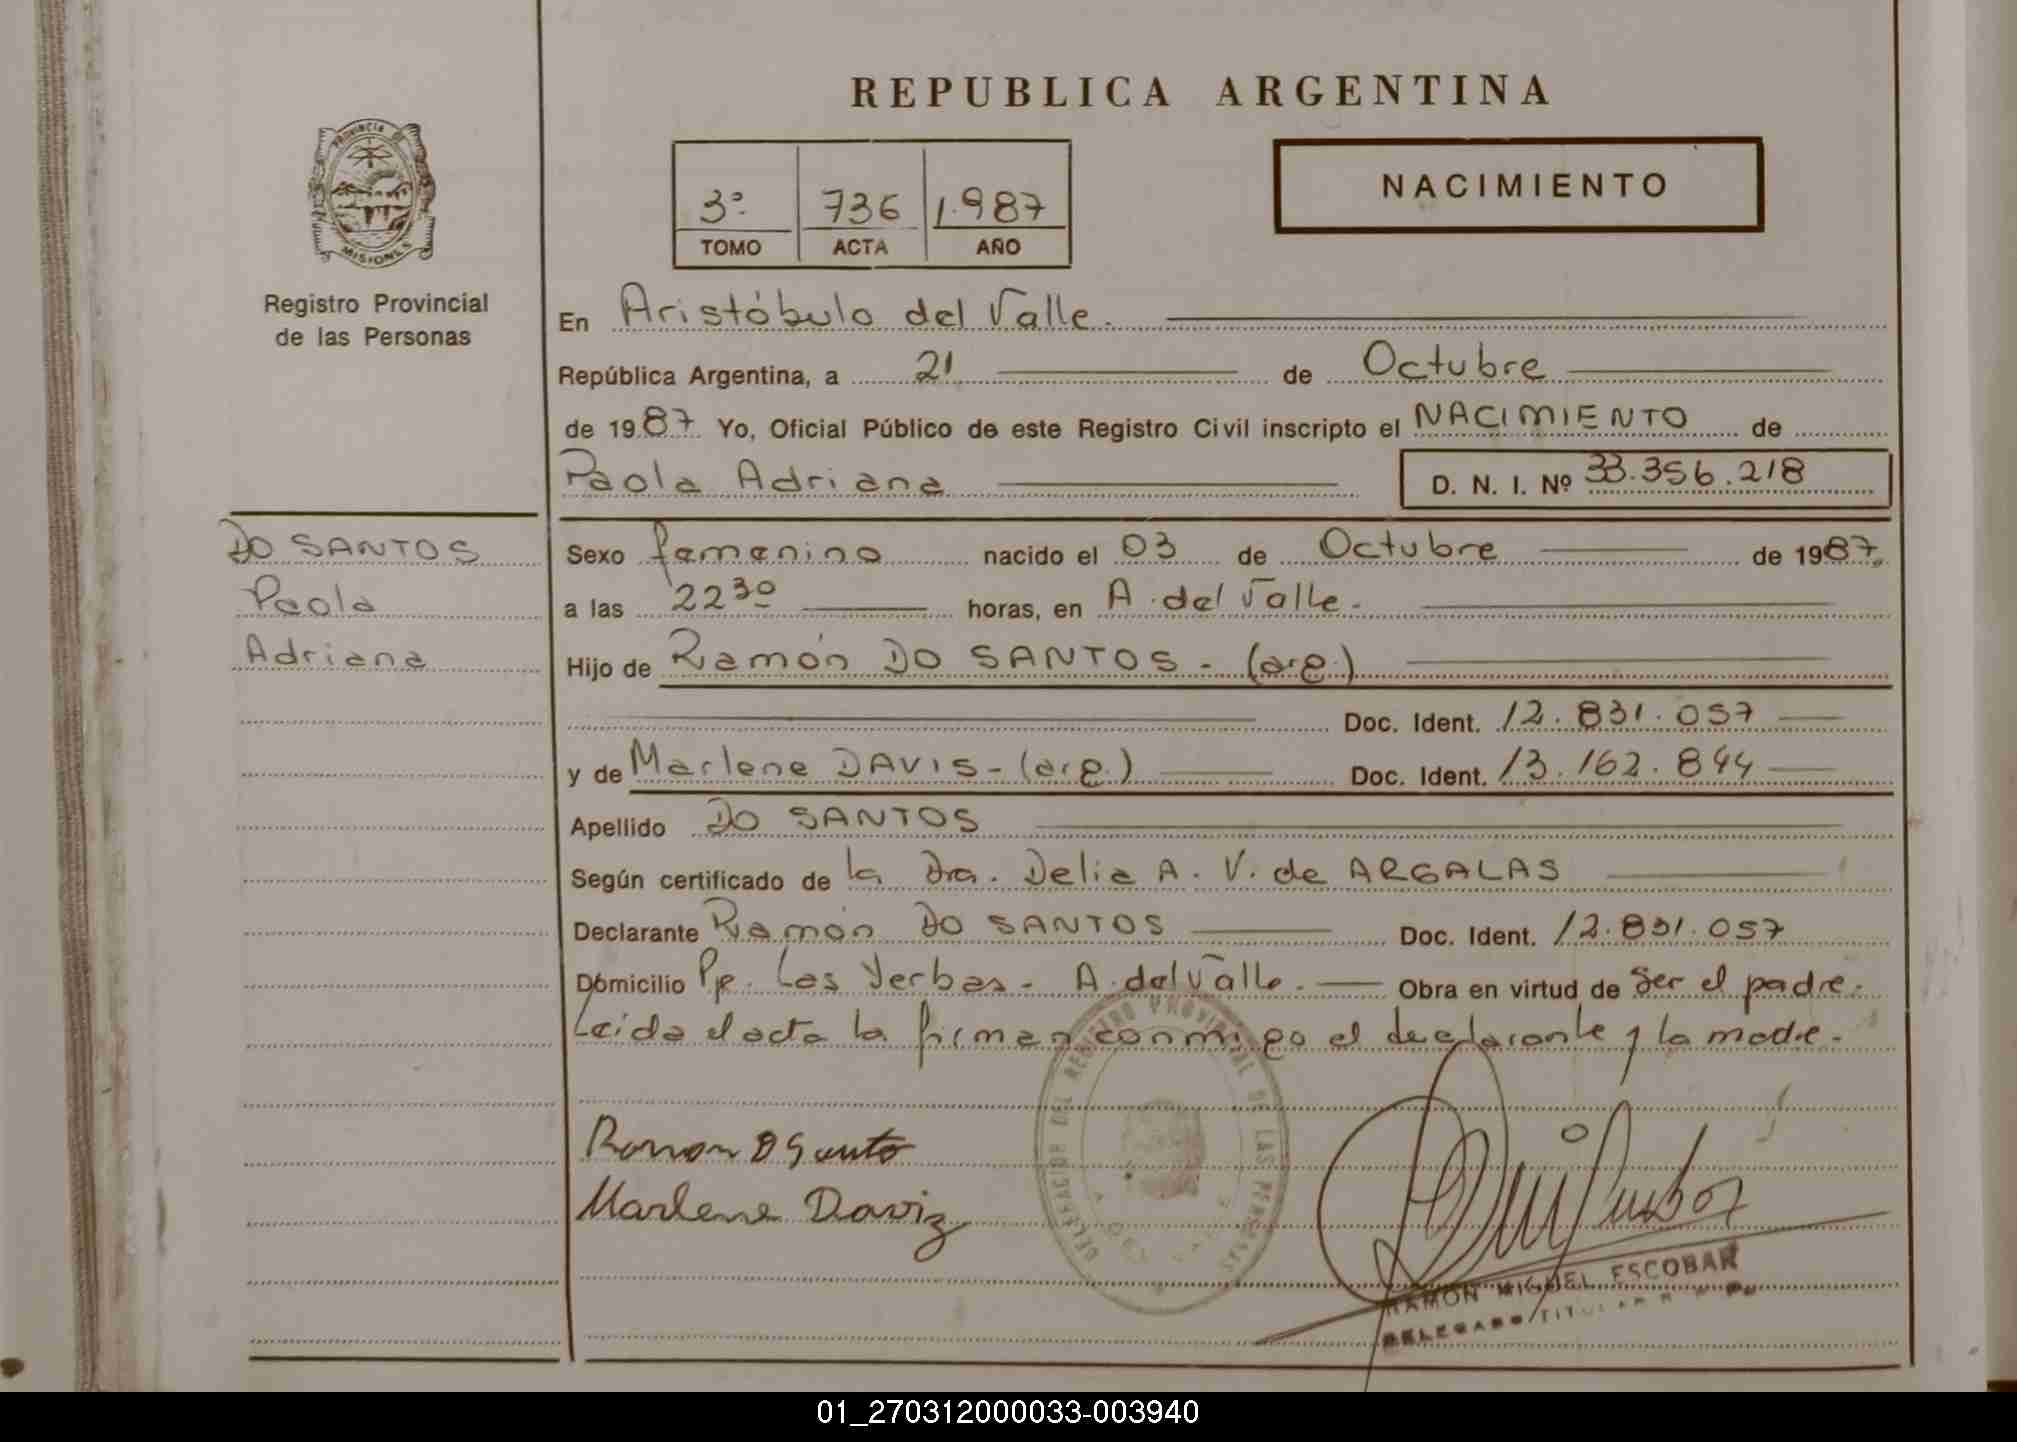 REPUBLICA ARGENTINA
PROVINCIA DE MISIONES
Registro Provincial
de las Personas
3º 736 1.987
TOMO ACTA AÑO
NACIMIENTO
En Aristóbulo del Valle.
República Argentina, a 21 de Octubre
de 1987 Yo, Oficial Público de este Registro Civil inscripto el NACIMIENTO de
Paola Adriana D. N. I. Nº 33.356.218
DO SANTOS
Paola
Adriana
Sexo femenino nacido el 03 de Octubre de 1987.
a las 22 30 horas, en A. del Valle.
Hijo de Ramón DO SANTOS - (arg.)
Doc. Ident. 12.831.057
y de Marlene DAVIS - (arg.) Doc. Ident. 13.162.844
Apellido DO SANTOS
Según certificado de la Dra. Delia A. V. de ARGALAS
Declarante Ramón DO SANTOS Doc. Ident. 12.831.057
Domicilio Pje. Las Yerbas - A. del Valle. Obra en virtud de Ser el padre.
Leida el acta la firman conmigo el declarante y la madre.
DELEGACION DEL REGISTRO PROVINCIAL DE LAS PERSONAS
A. DEL VALLE
Ramon D Santo
Marlene Daviz
RAMON MIGUEL ESCOBAR
DELEGADO TITULAR
01_270312000033-003940